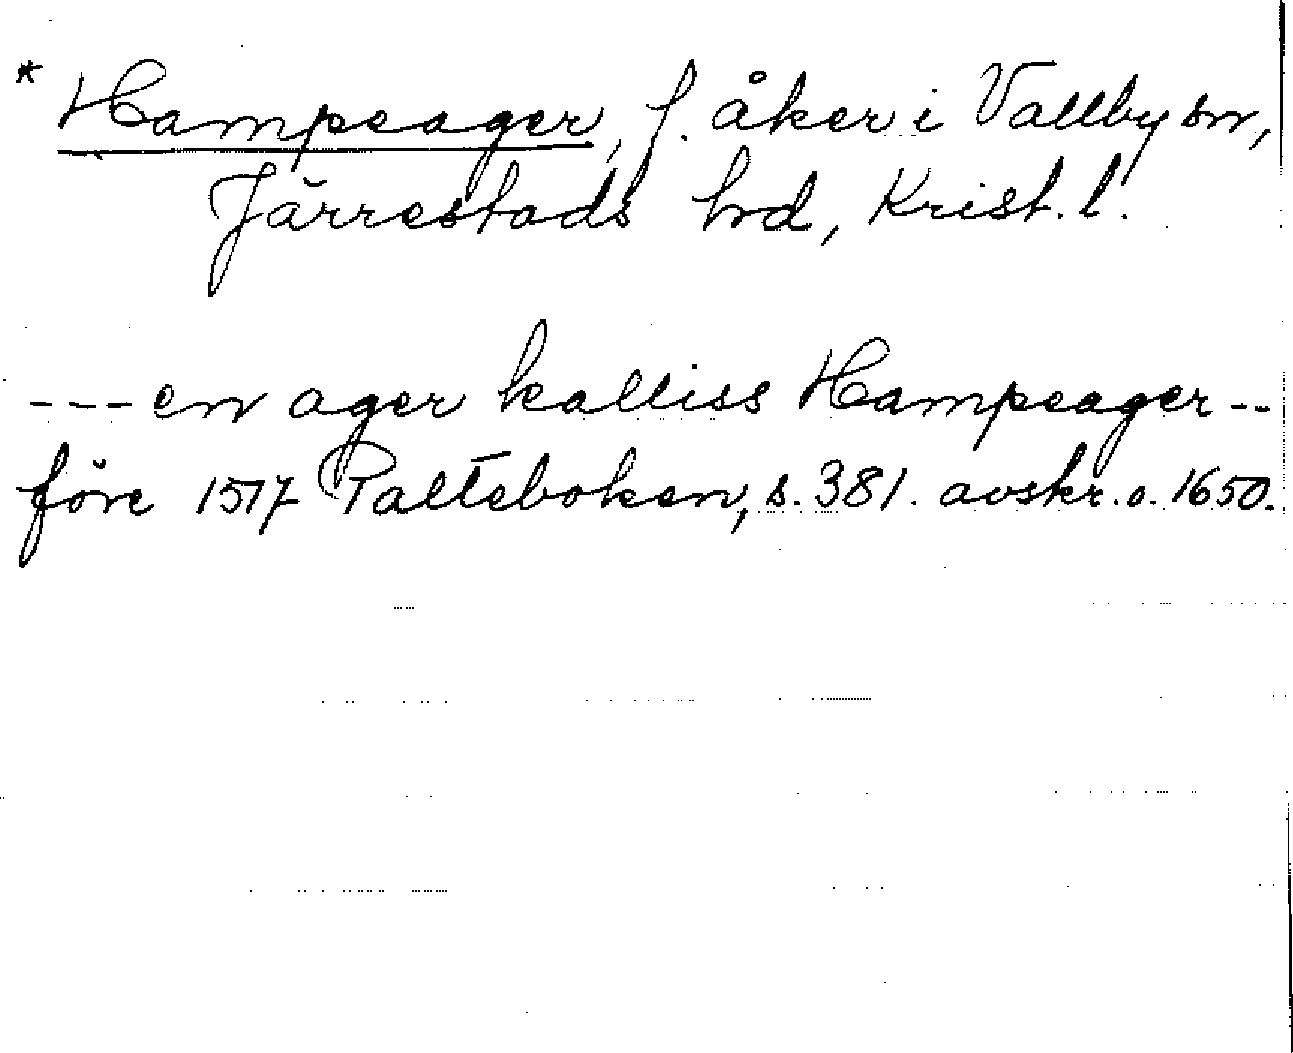 * Hampeager, f. åker i Vallby sn,
Järrestads hrd, Krist. l.
--- en ager kalliss Hampeager --
före 1517 Palteboken, s. 381. avskr. o. 1650.